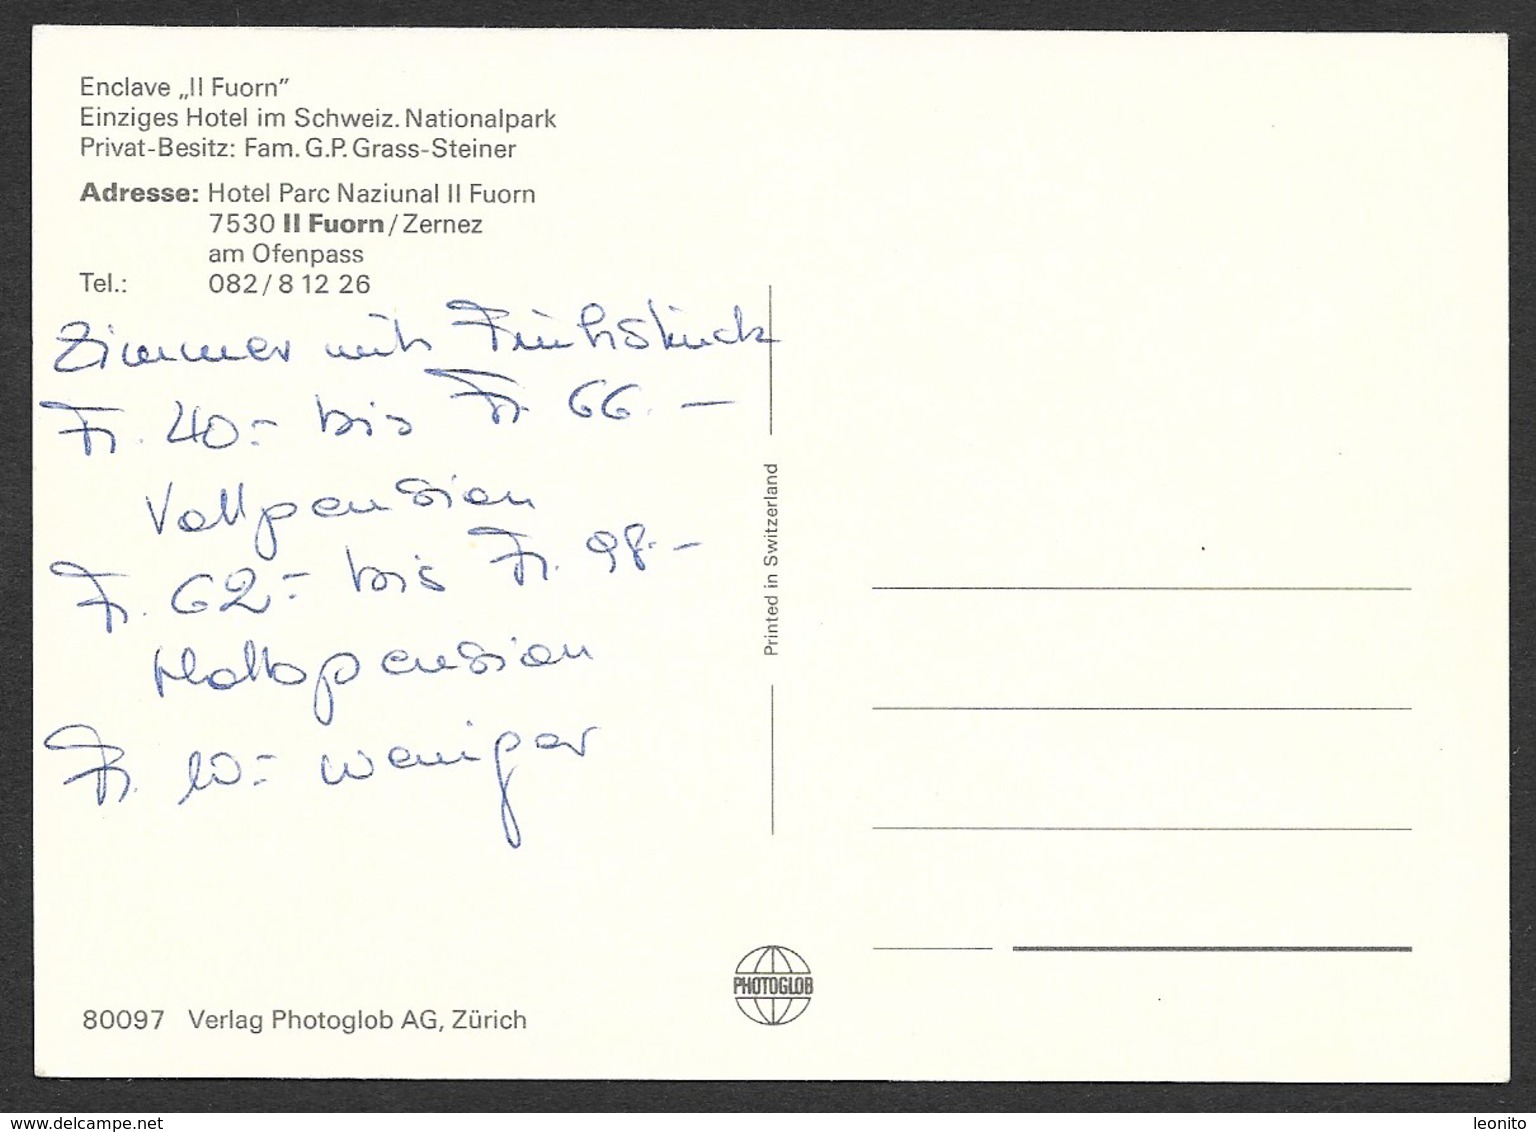 Enclave „Il Fuorn”
Einziges Hotel im Schweiz. Nationalpark
Privat-Besitz: Fam. G.P. Grass-Steiner
Adresse: Hotel Parc Naziunal Il Fuorn
7530 Il Fuorn/Zernez
am Ofenpass
Tel.: 082/8 12 26
Zimmer mit Frühstück
Fr. 40.- bis Fr. 66.—
Vollpension
Fr. 62.- bis Fr. 98.-
Halbpension
Fr. 10.- weniger
Printed in Switzerland
PHOTOGLOB
80097 Verlag Photoglob AG, Zürich
www.delcampe.net
leonito